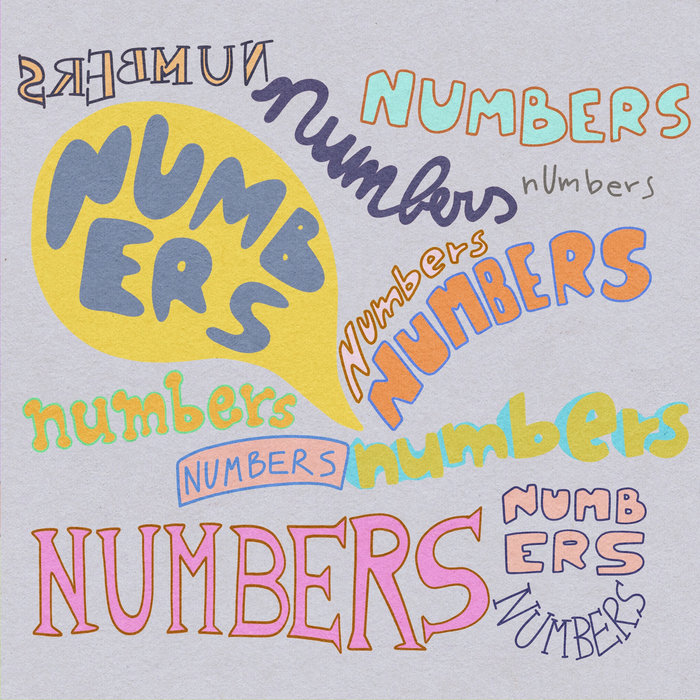 NUMBERS
NUMBERS
numbers
numbers
NUMB
ERS
Numbers
NUMBERS
numbers
numbers
NUMBERS
NUMBERS
NUMB
ERS
NUMBERS